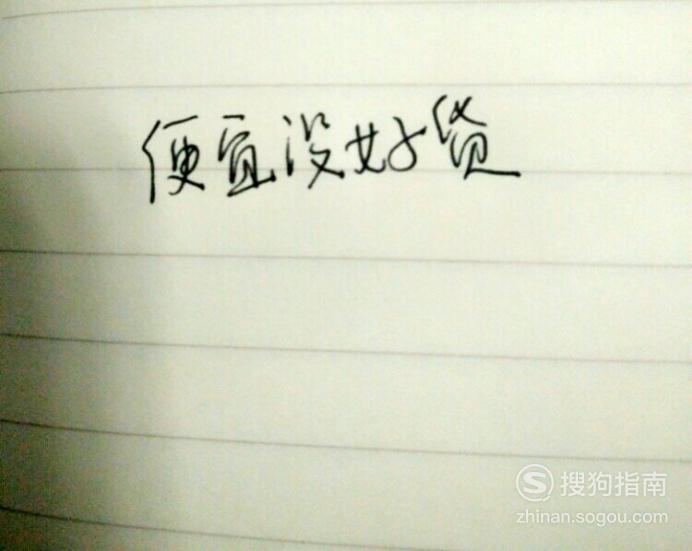 便宜没好货
搜狗指南
zhinan.sogou.com